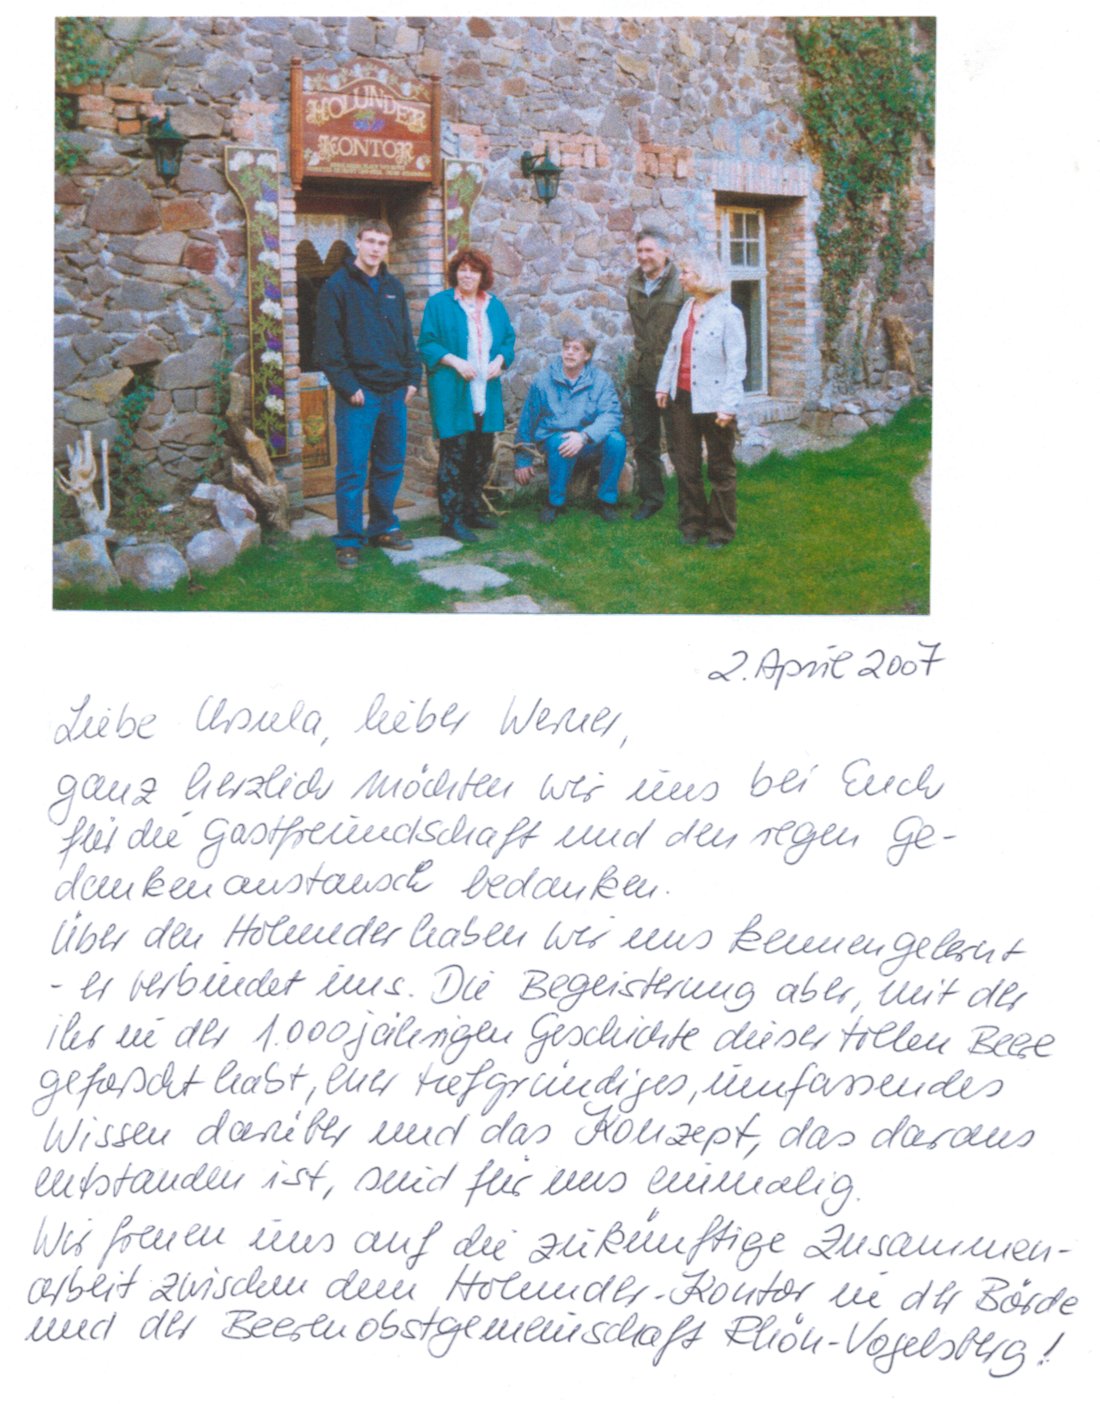 HOLUNDER
KONTOR
2. April 2007
Liebe Ursula, lieber Werner,
ganz herzlich möchten wir uns bei Euch
für die Gastfreundschaft und den regen Ge-
dankenaustausch bedanken.
Über den Holunder haben wir uns kennengelernt
- er verbindet uns. Die Begeisterung aber, mit der
ihr in der 1.000jährigen Geschichte dieser tollen Beere
geforscht habt, euer tiefgründiges, umfassendes
Wissen darüber und das Konzept, das daraus
entstanden ist, sind für uns einmalig.
Wir freuen uns auf die zukünftige Zusammen-
arbeit zwischen dem Holunder-Kontor in der Börde
und der Beerenobstgemeinschaft Rhön-Vogelsberg!